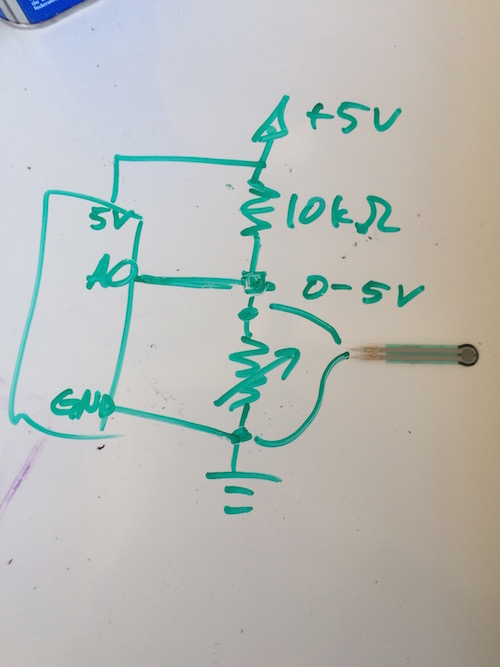 +5V
5V
10kΩ
A0
0-5V
GND